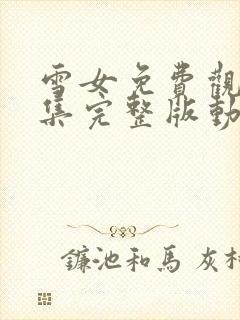 雪女免費觀
集完整版動
鐮池和馬 灰村